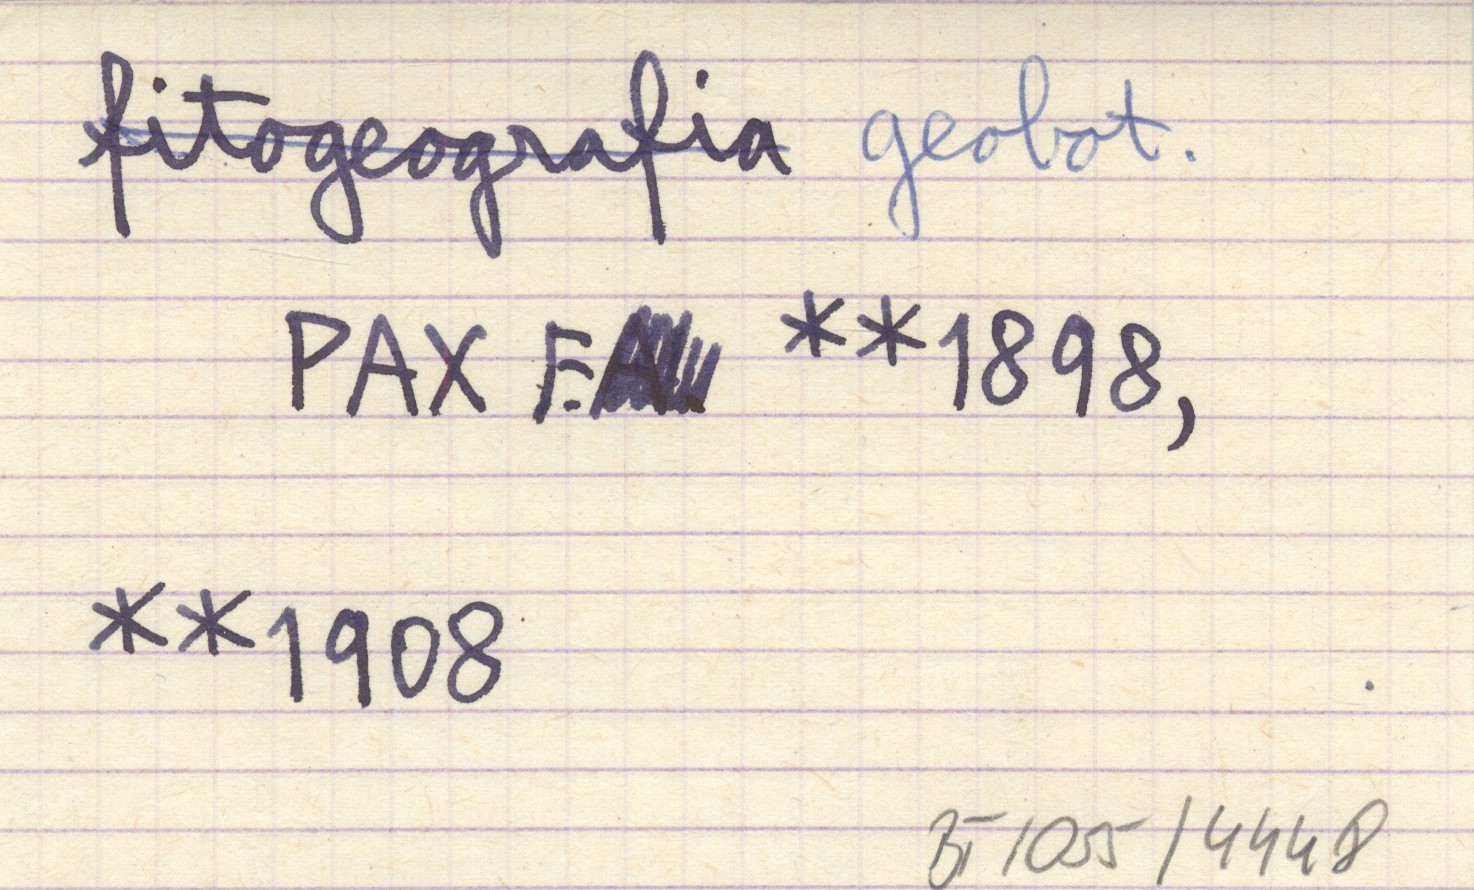 fitogeografia geobot.
PAX F. **1898,
**1908
BT/055/4448